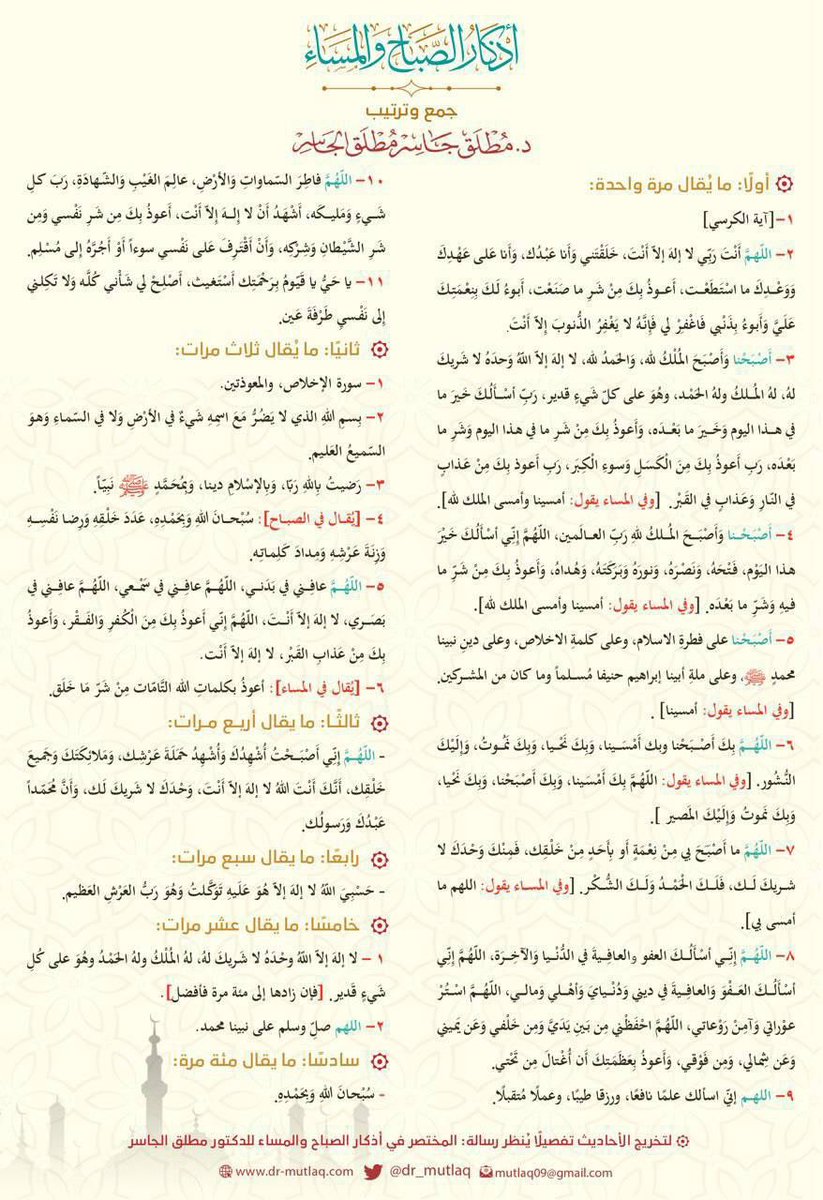 أذكار الصَّبَاحِ وَالمَسَاءِ
جمع وترتيب
د. مُطلَق جَاسِر مُطلَق الجَاسِر
أولًا: ما يُقال مرة واحدة:
١- [آية الكرسي]
٢- اللّهمَّ أَنْتَ رَبِّي لا إلهَ إلاّ أَنْتَ، خَلَقْتَني وَأَنا عَبْدُك، وَأَنا عَلى عَهْدِكَ
وَوَعْدِكَ ما اسْتَطَعْت، أَعـوذُ بِكَ مِنْ شَرِ ما صَنَعْت، أَبوءُ لَكَ بِنِعْمَتِكَ
عَلَيَّ وَأَبوءُ بِذَنْبي فَاغْفِرْ لي فَإِنَّهُ لا يَغْفِرُ الذُّنوبَ إِلاّ أَنْتَ.
٣- أَصْبَحْنا وَأَصْبَحَ المُلْكُ لله، وَالحَمدُ لله، لا إلهَ إلاّ اللهُ وَحدَهُ لا شَريكَ
لهُ، لهُ المُـلكُ ولهُ الحَمْـد، وهُوَ على كلّ شَيءٍ قدير، رَبِّ أسْـأَلُـكَ خَيرَ ما
في هـذا اليوم وَخَـيرَ ما بَعْـدَه، وَأَعوذُ بِكَ مِنْ شَرِ ما في هذا اليوم وَشَرِ ما
بَعْدَه، رَبِ أَعوذُ بِكَ مِنَ الْكَسَلِ وَسوءِ الْكِبَر، رَبِ أَعوذ بِكَ مِنْ عَذابٍ
في النّارِ وَعَذابٍ في القَبْر. [وفي المساء يقول: أمسينا وأمسى الملك لله].
٤- أَصْبَـحْـنا وَأَصْبَـحَ المُـلكُ للهِ رَبِّ العـالَمين، اللهُمَّ إِنِّي أسْأَلُـكَ خَـيْرَ
هذا اليَوْم، فَتْحَهُ، وَنَصْرَهُ، وَنورَهُ وَبَرَكَتَهُ، وَهُداهُ، وَأَعوذُ بِكَ مِنْ شَرِّ ما
فيهِ وَشَرِّ ما بَعْدَه. [وفي المساء يقول: أمسينا وأمسى الملك لله].
٥- أَصْبَحْنا على فطرةِ الاسلام، وعلى كلمةِ الاخلاص، وعلى دينِ نبينا
محمدٍ ﷺ، وعلى ملةِ أبينا إبراهيم حنيفا مُسـلماً وما كان من المشـركين.
[وفي المساء يقول: أمسينا] .
٦- اللّهُـمَّ بِكَ أَصْـبَحْنا وبك أَمْسَـينا، وَبِكَ نَحْـيا، وَبِكَ نَمُـوتُ، وَإِلَيْكَ
النُّشُور. [وفي المساء يقول: اللّهُمَّ بِكَ أَمْسَينا، وَبِكَ أَصْبَحْنا، وَبِكَ نَحْيا،
وَبِكَ نَموتُ وَإِلَيْكَ المَصير ].
٧- اللّهُـمَّ ما أَصْبَحَ بي مِنْ نِعْمَةٍ أَو بِأَحَدٍ مِنْ خَلْقِك، فَمِنْكَ وَحْدَكَ لا
شـريكَ لَـك، فَلَـكَ الْحَمْـدُ وَلَـكَ الشُّـكْر. [وفي المسـاء يقول: اللهم ما
أمسى بي].
٨- اللّهُـمَّ إِنِّـي أسْـأَلُـكَ العفو والعافِـيةَ في الدُّنْـيا وَالآخِـرَة، اللّهُـمَّ إِنِّي
أسْـأَلُكَ العَـفْوَ وَالعافِـيةَ في ديني وَدُنْـيايَ وَأهْـلي وَمالـي، اللّهُـمَّ اسْـتُرْ
عوْراتي وَآمِنْ رَوْعاتي، اللّهُمَّ احْفَظْني مِن بَينِ يَدَيَّ وَمِن خَلْفي وَعَن يَميني
وَعَن شِمالي، وَمِن فَوْقي، وَأَعوذُ بِعَظَمَتِكَ أَن أُغْتالَ مِن تَحْتي.
٩- اللهـم إنّي اسالك علمًا نافعًا، ورزقا طيبًا، وعملًا مُتقبلًا.
١٠- اللّهُمَّ فاطِرَ السّماواتِ وَالأرْضِ، عالِمَ الغَيْبِ وَالشّهادَةِ، رَبَ كلِ
شَـيءٍ وَمَليـكَه، أَشْهَدُ أَنْ لا إِلـهَ إِلاّ أَنْت، أَعوذُ بِكَ مِن شَرِ نَفْسي وَمِن
شَرِ الشَّيْطانِ وَشِركِهِ، وَأَنْ أَقْتَرِفَ عَلى نَفْسي سوءاً أَوْ أَجُرَّهُ إِلى مُسْلِم.
١١- يا حَيُّ يا قَيّومُ بِرَحْمَتِك أَسْتَغيث، أَصْلِحْ لي شَأْني كُلَّه وَلا تَكِلني
إِلى نَفْسي طَرْفَةَ عَين.
ثانيًا: ما يُقال ثلاث مرات:
١- سورة الإخلاص، والمعوذتين.
٢- بِسمِ اللهِ الذي لا يَضُرُّ مَعَ اسمِهِ شَيءٌ في الأرْضِ وَلا في السّماءِ وَهوَ
السّميعُ العَليم.
٣- رَضيتُ بِاللهِ رَبًا، وَبِالإسْلامِ دينا، وَبِمُحَمَّدٍ ﷺ نَبيّاً.
٤- [يُقال في الصباح]: سُبْحـانَ اللهِ وَبِحَمْدِه، عَدَدَ خَلْقِهِ وَرِضا نَفْسِـهِ
وَزِنَةَ عَرْشِهِ وَمِدادَ كَلِماتِه.
٥- اللّهُمَّ عافِـني في بَدَني، اللّهُمَّ عافِـني في سَمْـعي، اللّهُـمَّ عافِـني في
بَصَـري، لا إلهَ إلاّ أَنْـتَ، اللّهُمَّ إِنِّي أَعوذُ بِكَ مِنَ الْكُفرِ وَالفَـقْر، وَأَعوذُ
بِكَ مِنْ عَذابِ القَبْر، لا إلهَ إلاّ أَنْت.
٦- [يُقال في المساء]: أعوذُ بكلماتِ الله التَّامّات مِنْ شَرِّ مَا خَلَق.
ثالثًا: ما يقال أربع مرات:
- اللّهُـمَّ إِنِّي أَصْبَـحْتُ أُشْهِدُكَ وَأُشْهِدُ حَمَلَةَ عَرْشِك، وَمَلائِكَتَكَ وَجَميعَ
خَلْقِك، أَنَّكَ أَنْتَ اللهُ لا إلهَ إلاّ أَنْتَ، وَحْدَكَ لا شَريكَ لَك، وَأَنَّ مُحَمّداً
عَبْدُكَ وَرَسولُك.
رابعًا: ما يقال سبع مرات:
- حَسْبِيَ اللهُ لا إلهَ إلاّ هُوَ عَلَيهِ تَوَكَّلتُ وَهُوَ رَبُّ العَرْشِ العَظيم.
خامسًا: ما يقال عشر مرات:
١ - لا إلهَ إلاّ اللهُ وحْدَهُ لا شَريكَ لهُ، لهُ المُلْكُ ولهُ الحَمْدُ وهُوَ على كُلِ
شَيءٍ قَدير. [فإن زادها إلى مئة مرة فأفضل] .
٢- اللهم صلّ وسلم على نبينا محمد.
سادسًا: ما يقال مئة مرة:
- سُبْحانَ اللهِ وَبِحَمْدِهِ.
لتخريج الأحاديث تفصيلًا يُنظر رسالة: المختصر في أذكار الصباح والمساء للدكتور مطلق الجاسر
www.dr-mutlaq.com @dr_mutlaq mutlaq09@gmail.com